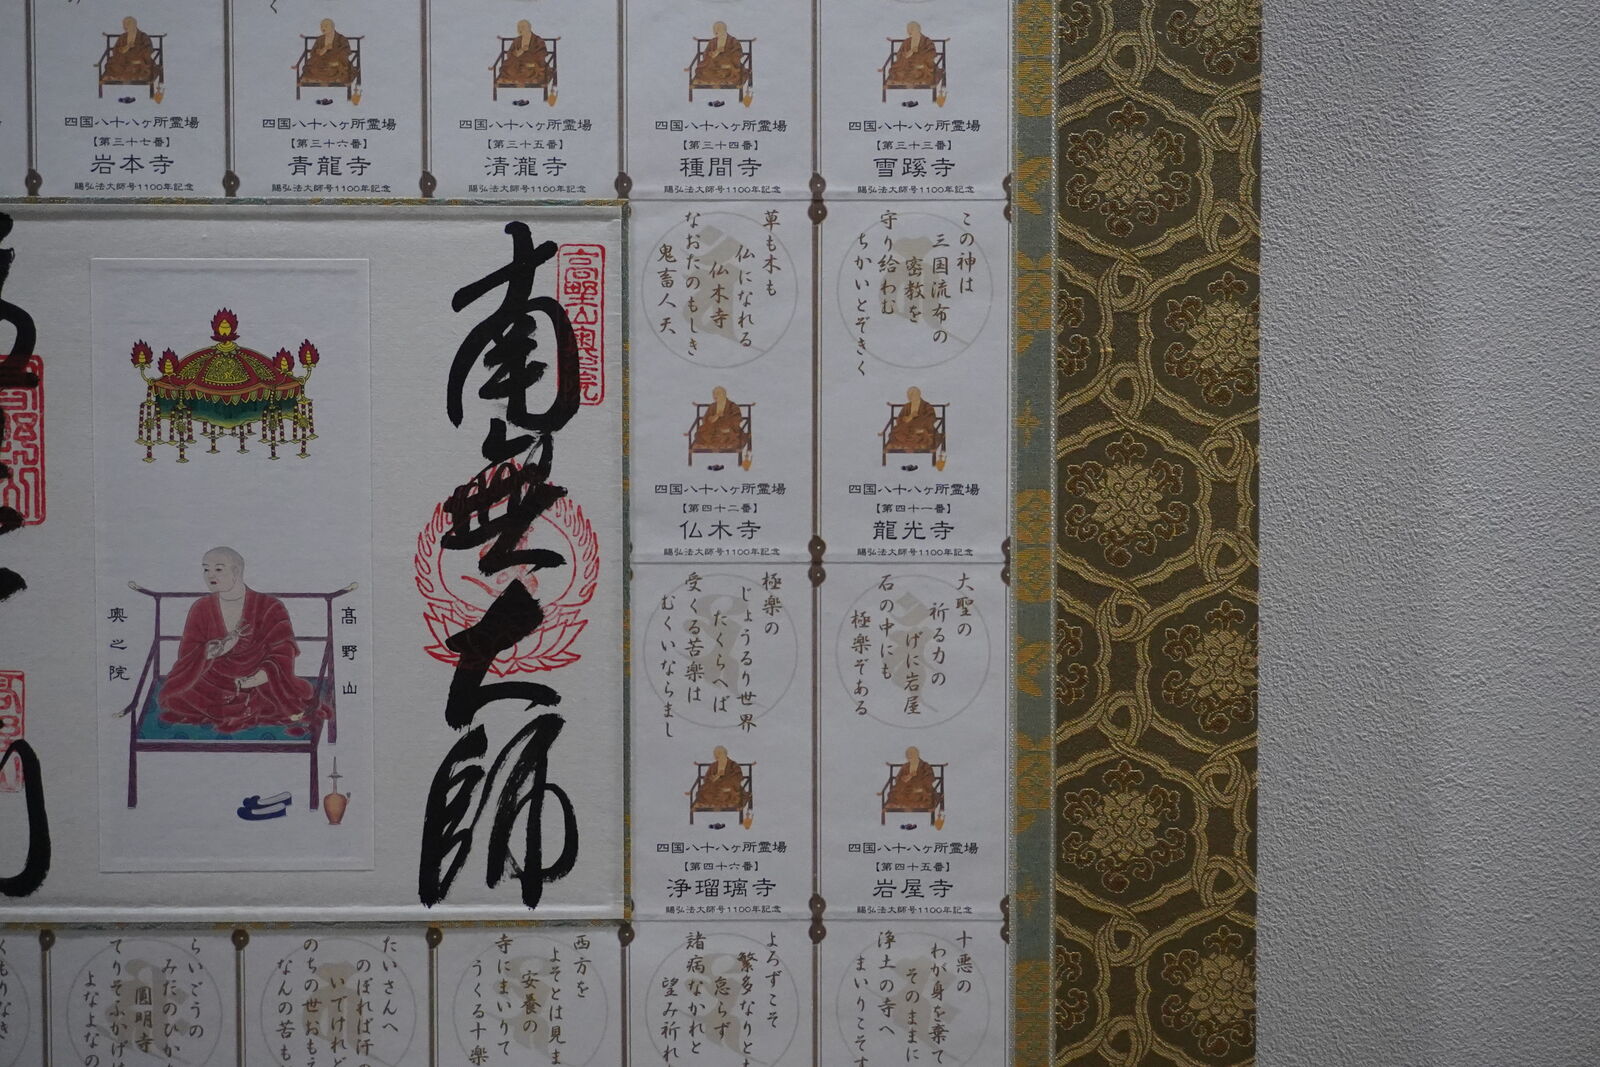 四国八十八ヶ所霊場
【第三十七番】
岩本寺
賜弘法大師号1100年記念
四国八十八ヶ所霊場
【第三十六番】
青龍寺
賜弘法大師号1100年記念
四国八十八ヶ所霊場
【第三十五番】
清瀧寺
賜弘法大師号1100年記念
四国八十八ヶ所霊場
【第三十四番】
種間寺
賜弘法大師号1100年記念
四国八十八ヶ所霊場
【第三十三番】
雪蹊寺
賜弘法大師号1100年記念
この神は
三国流布の
密教を
守り給わむ
ちかいとぞきく
四国八十八ヶ所霊場
【第四十一番】
龍光寺
賜弘法大師号1100年記念
草も木も
仏になれる
仏木寺
なおたのもしき
鬼畜人天
四国八十八ヶ所霊場
【第四十二番】
仏木寺
賜弘法大師号1100年記念
高野山奥之院
南無大師
髙野山
奥之院
大聖の
祈る力の
げに岩屋
石の中にも
極楽ぞある
四国八十八ヶ所霊場
【第四十五番】
岩屋寺
賜弘法大師号1100年記念
極楽の
じょうるり世界
たくらへば
受くる苦楽は
むくいならまし
四国八十八ヶ所霊場
【第四十六番】
浄瑠璃寺
賜弘法大師号1100年記念
十悪の
わが身を棄て
そのままに
浄土の寺へ
まいりこそす
よろずこそ
繁多なりとも
怠らず
諸病なかれと
望み祈れ
西方を
よそとは見ま
安養の
寺にまいりて
うくる十楽
たいさんへ
のぼれば汗の
いでけれど
のちの世おもえ
なんの苦も
らいごうの
みだのひか
圓明寺
てりそふかげ
よなよなの
くもりなき